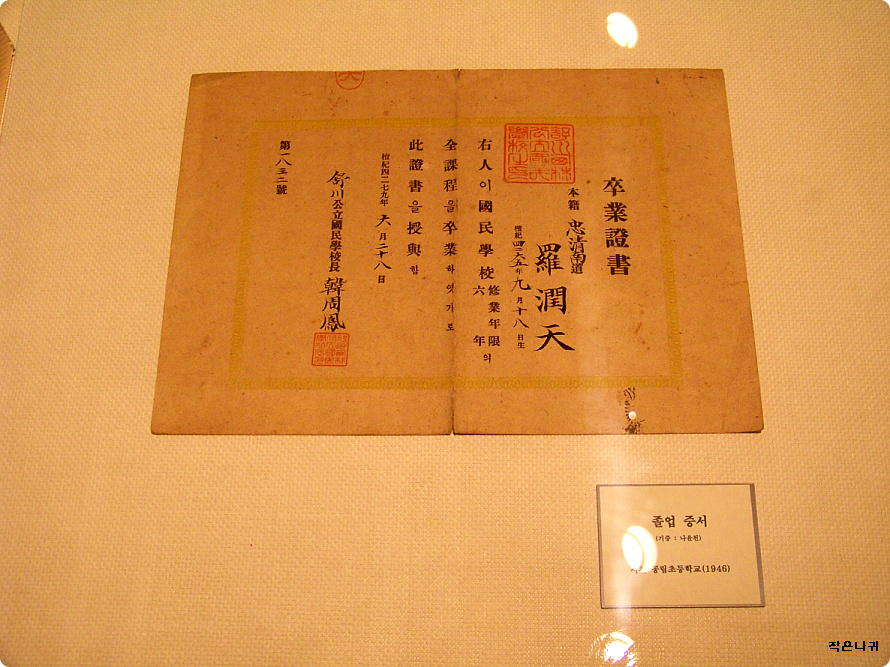 卒業證書
本籍 忠淸南道
羅潤天
檀紀四二六五年九月十八日生
右人이國民學校修業年限六年의
全課程을卒業하엿기로
此證書을授與함
檀紀四二七九年 六月二十八日
舒川公立國民學校長 韓周鳳
第一八三二號
졸업 증서
(기증 : 나윤천)
공립초등학교(1946)
작은나귀